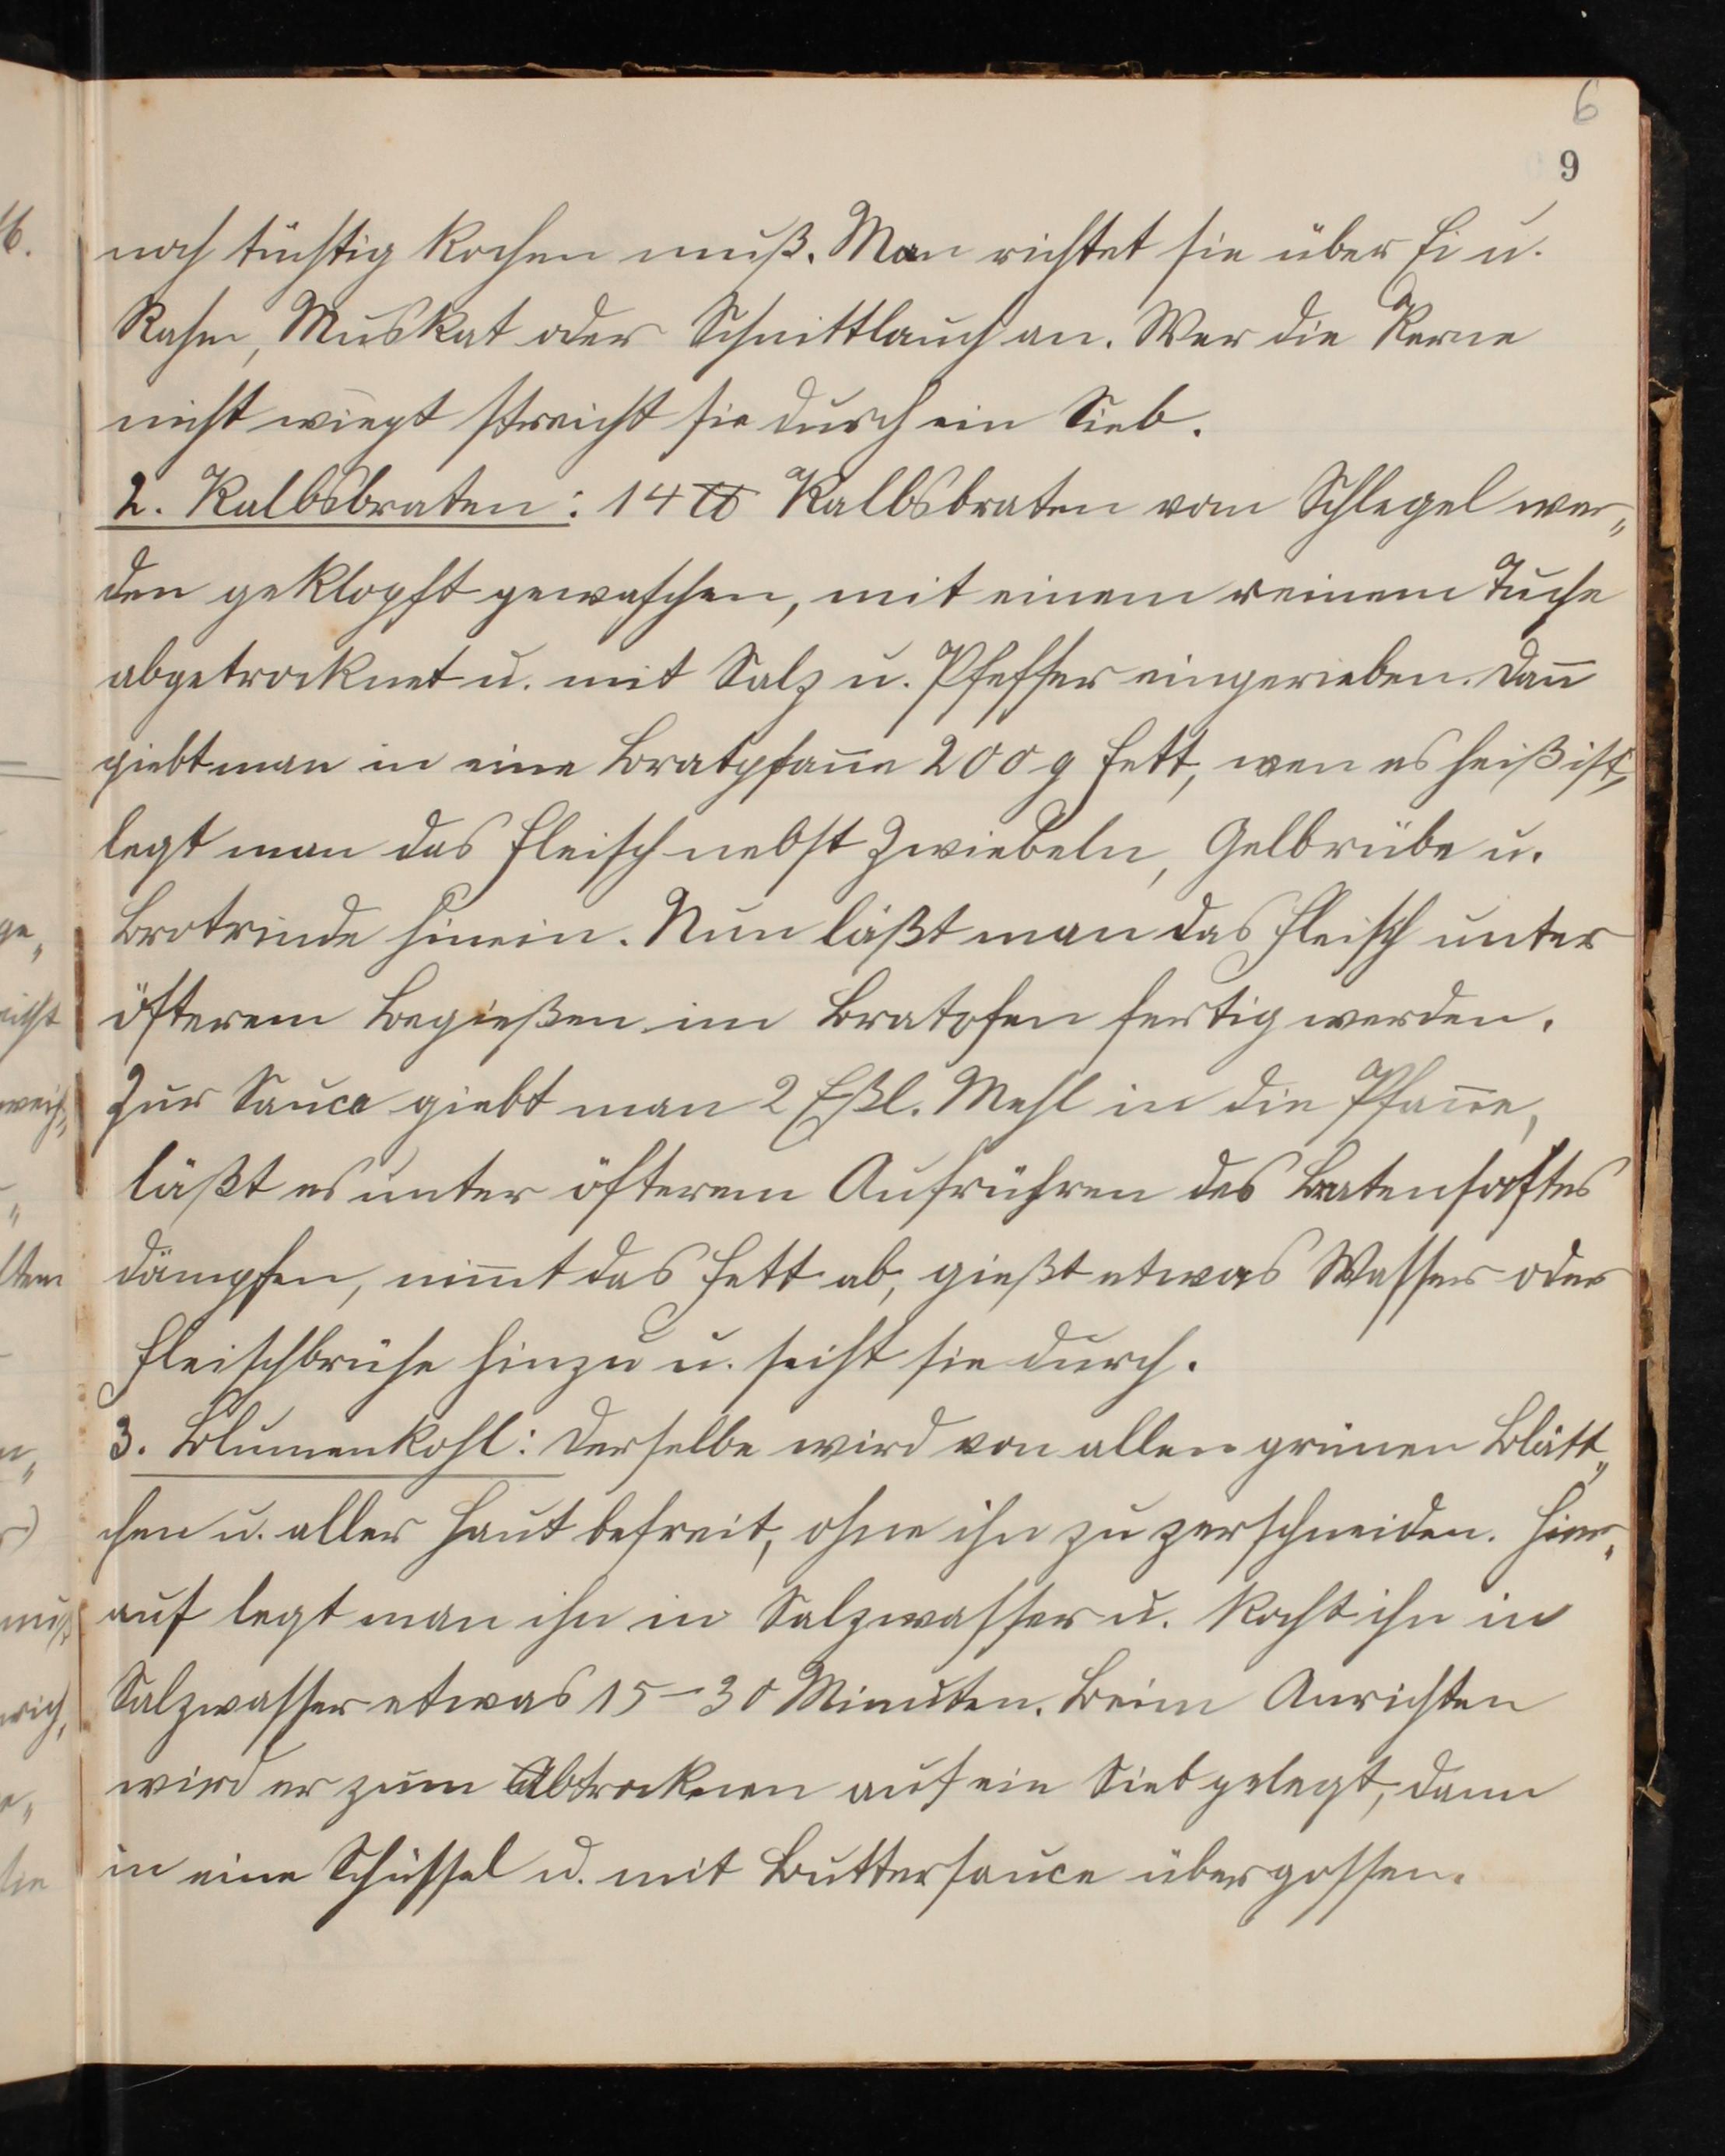 6
9
noch tüchtig kochen muß. Man richtet sie über Ei u.
Rahm, Muskat oder Schnittlauch an. Wer die Kerne
nicht wiegt streicht sie durch ein Sieb.
2. Kalbsbraten: 14 ℔ Kalbsbraten vom Schlegel wer„
den geklopft gewaschen, mit einem reinem Tuche
abgetrocknet u. mit Salz u. Pfeffer eingerieben. Dan̄
giebt man in eine Bratpfan̄e 200 g Fett, wen es heiß ist,
legt man das Fleisch nebst Zwiebeln, Gelbrübe u.
Brotrinde hinein. Nun läßt man das Fleisch unter
öfterem Begießen im Bratofen fertig werden.
Zur Sauce giebt man 2 Eßl. Mehl in die Pfan̄e,
läßt es unter öfterem Aufrühren des Bratensaftes
dämpfen, nim̄t das Fett ab, gießt etwas Wasser oder
Fleischbrühe hinzu u. seiht sie durch.
3. Blumenkohl: Derselbe wird von allen grünen Blätt„
chen u. aller Haut befreit, ohne ihn zu zerschneiden. Hier„
auf legt man ihn in Salzwasser u. kocht ihn in
Salzwasser etwas 15–30 Minuten. Beim Anrichten
wird er zum Abtrocknen auf ein Sieb gelegt, dann
in eine Schüssel u. mit Buttersauce übergossen.